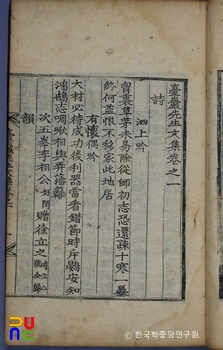 臺巖先生文集卷之一
詩
泗上吟
曾裹草茅未易除從師初志恐還疎十寒一暴
終何益恨不移家此地居
有懷偶吟
大材必待成功後利器當看錯節時斥鷃安知
鴻鵠志啁啾相與弄藩籬
次五峯李相公 好閔 贈徐立之
韻
PUNE
© 한국학중앙연구원